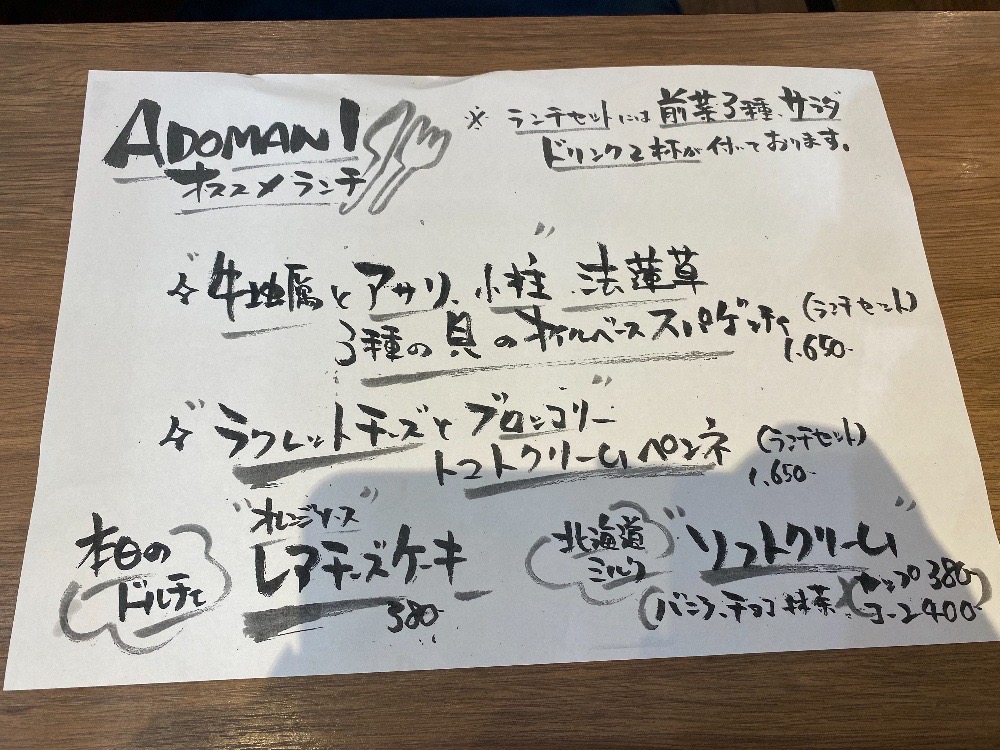 ADOMANI
オススメランチ
※ランチセットには前菜3種、サラダ
ドリンク2杯が付いております。
牛地腐とアサリ、小柱、法蓮草
3種の貝のオイルベーススパゲッティ
(ランチセット)
1.650-
ラクレットチーズとブロッコリー
トマトクリームペンネ
(ランチセット)
1.650-
本日の
ドルチェ
"オレンジソース"
レアチーズケーキ
380-
北海道
ミルク
"ソフトクリーム"
(バニラ、チョコ、抹茶)
カップ380-
コーン400-